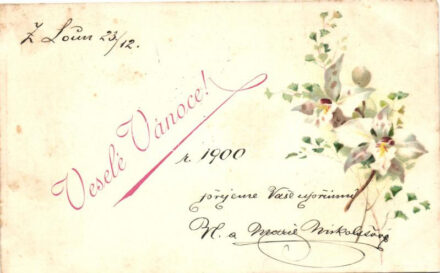 Z Loun 23/12.
Veselé Vánoce!
r. 1900
přejeme Vaše upřímní
N. a Marie